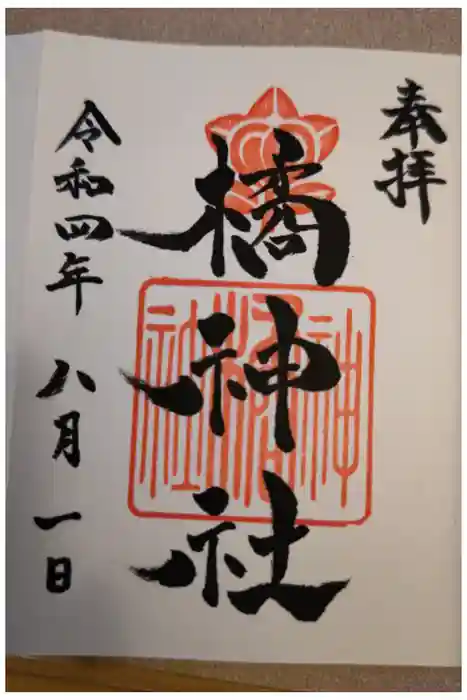 奉拝
橘神社
令和四年 八月一日